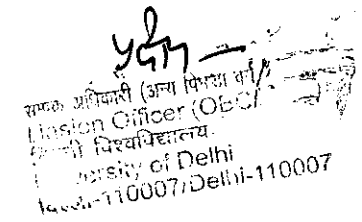 सम्पर्क अधिकारी (अन्य पिछड़ा वर्ग)
Liasion Officer (OBC)
विश्वविद्यालय
University of Delhi
110007/Delhi-110007